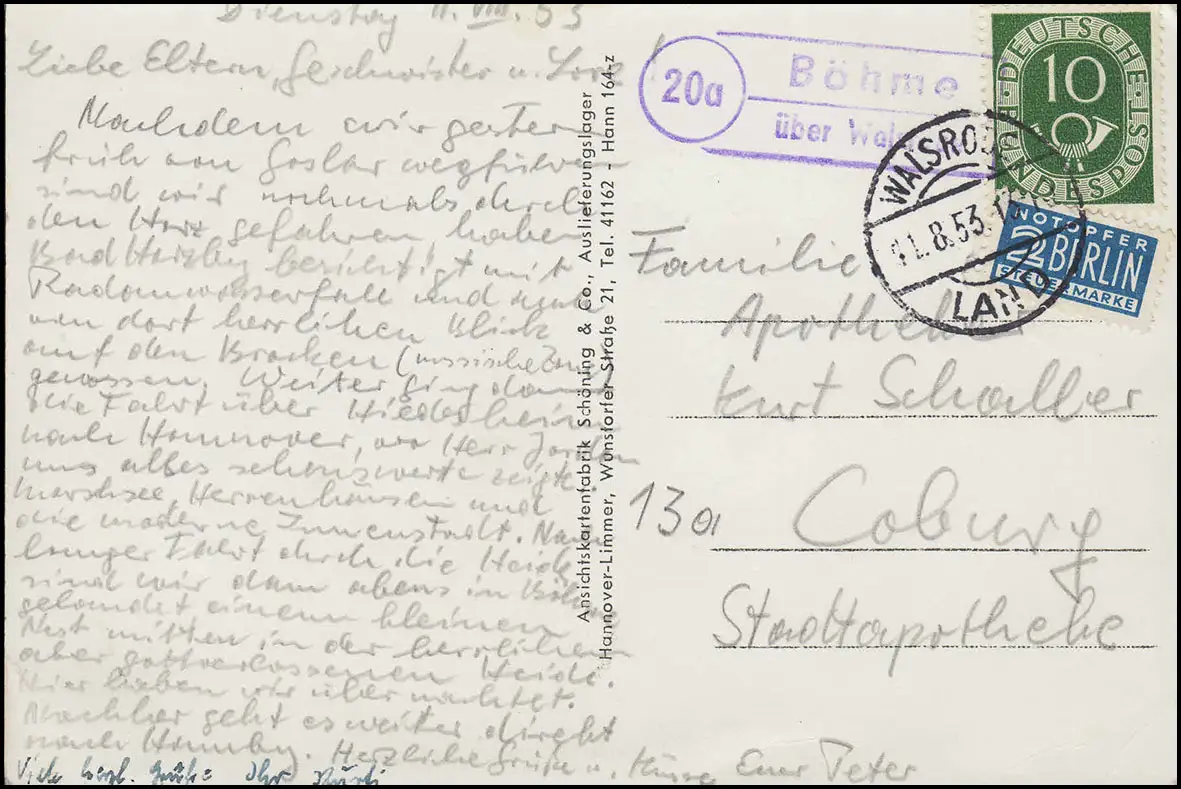 Dienstag 11. VIII. 53
Liebe Eltern, Geschwister u.
Nachdem wir gestern
früh von Goslar wegfuhren
sind wir nochmals durch
den Harz gefahren, haben
Bad Harzbg besichtigt mit
Radauwasserfall und
von dort herrlichen Blick
auf den Brocken (russische Zone)
genossen. Weiter ging dann
die Fahrt über Hildesheim
nach Hannover, wo Herr
uns alles sehenswerte zeigte.
Maschsee, Herrenhausen und
die moderne Innenstadt. Nach
langer Fahrt durch die Heide
sind wir dann abens in Böhme
gelandet einem kleinen
Nest mitten in der herrlichen
aber gottverlassenen Heide.
Hier haben wir übernachtet.
Nachher geht es weiter direkt
nach Hambg. Herzliche Grüße u. Küsse Euer Peter
Viele herzl. Grüße Ihr
Ansichtskartenfabrik Schöning & Co., Auslieferungslager
Hannover-Limmer, Wunstorfer Straße 21, Tel. 41162 - Hann 164-z
20a
Böhme
über
WALSRODE
11.8.53
LAND
DEUTSCHE BUNDESPOST
10
NOTOPFER
2 BERLIN
STEUERMARKE
Familie
Apotheker
Kurt Schaller
13a Coburg
Stadtapotheke